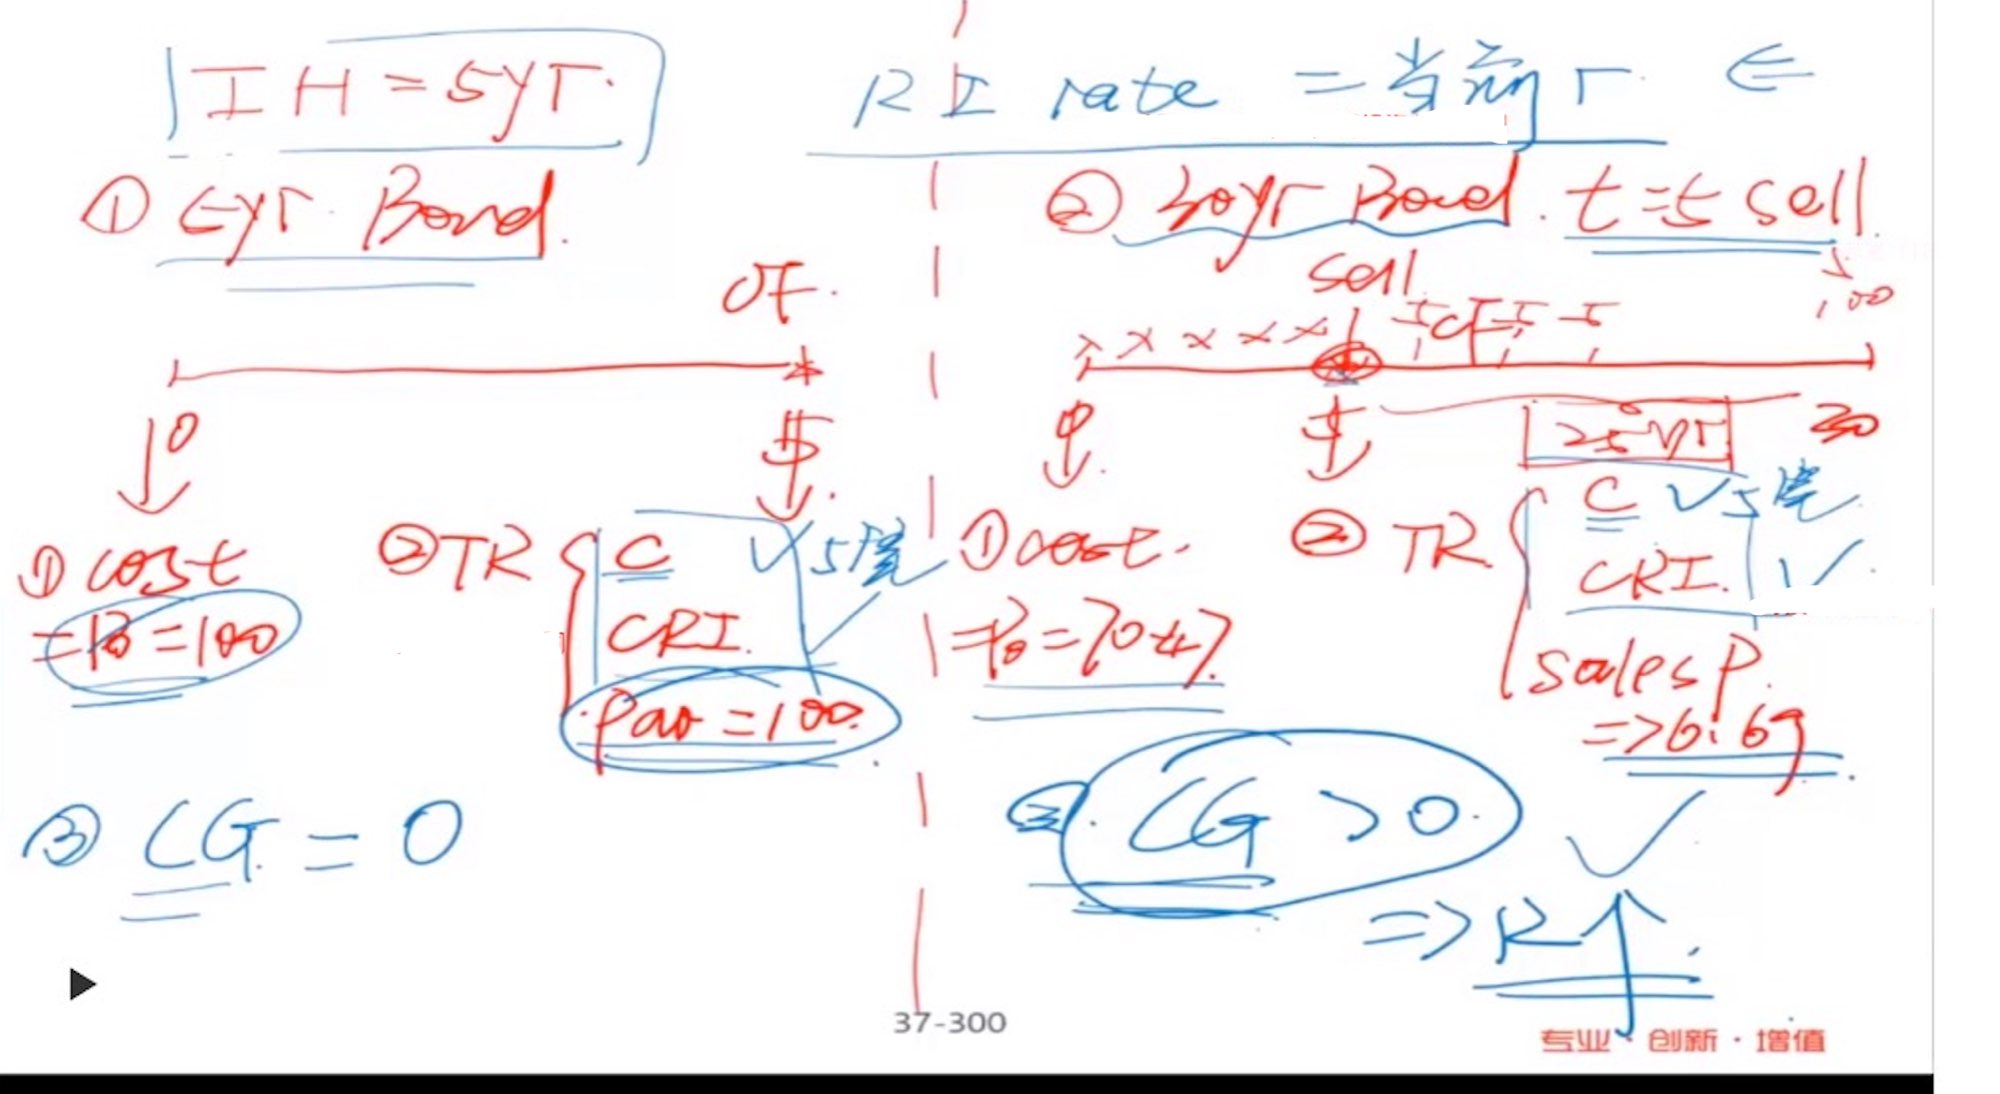 IH = 5yr.
RI rate = 当前 r. ⇐
① 5yr. Bond.
② 30yr Bond. t=5 sell.
OF.
sell
x x x x x
CF
100
0
$
0
$
25yr
30
① cost
=P0=100
② TR { C √ 5笔
CRI.
Par=100.
① cost.
=P0=70.47.
② TR { C √ 5笔
CRI. √
Sales P.
=76.69
③ CG = 0
③ CG > 0.
√
=> R↑.
37-300
专业·创新·增值